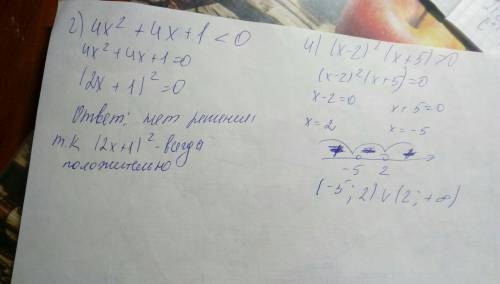 2) 4x² + 4x + 1 < 0
4x² + 4x + 1 = 0
(2x + 1)² = 0
Ответ: нет решений
т.к (2x+1)² - всегда
положительно
4) (x-2)² (x+5) > 0
(x-2)² (x+5) = 0
x-2=0 x+5=0
x=2 x=-5
-5 2
(-5; 2) ∪ (2; +∞)